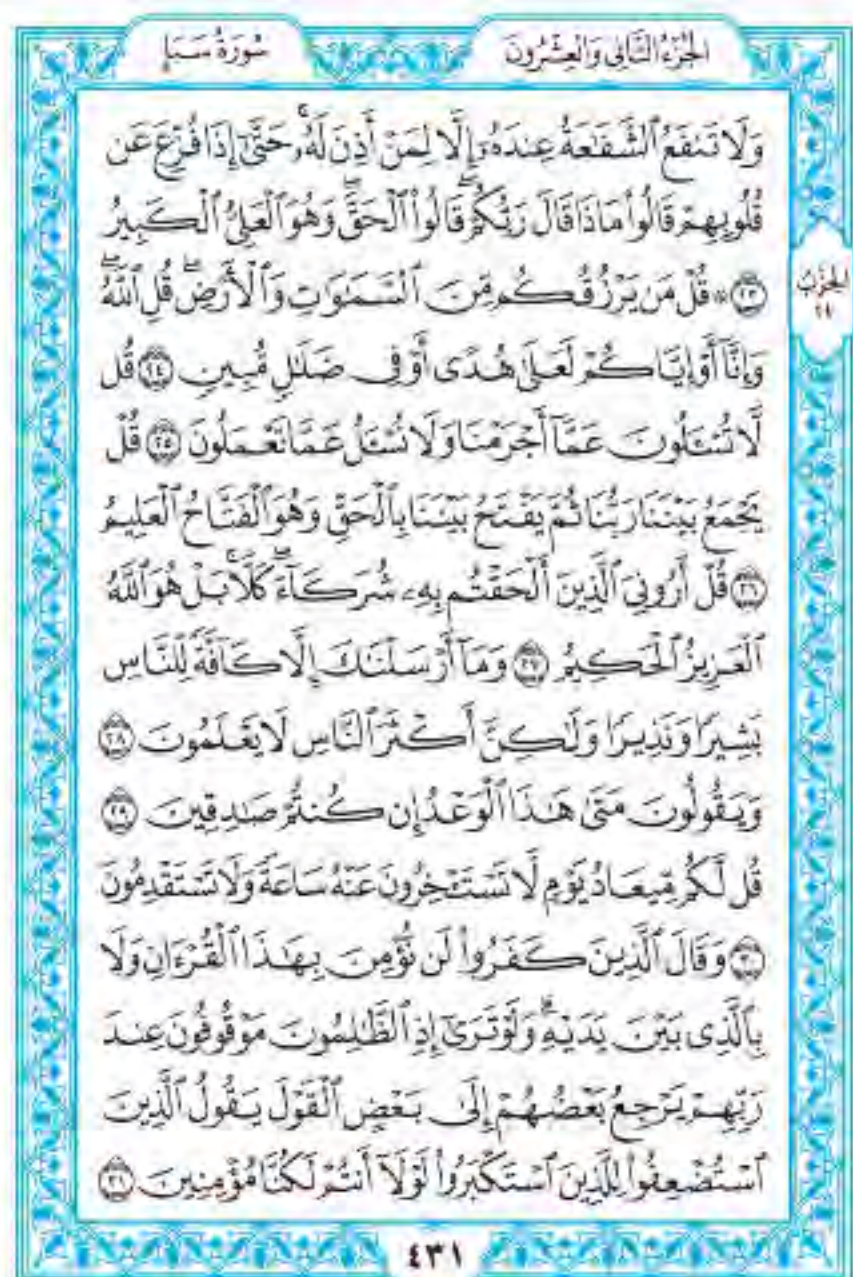 الجزء الثاني والعشرون
سورة سبإ
وَلَا تَنفَعُ ٱلشَّفَٰعَةُ عِندَهُۥٓ إِلَّا لِمَنْ أَذِنَ لَهُۥۚ حَتَّىٰٓ إِذَا فُزِّعَ عَن
قُلُوبِهِمْ قَالُوا۟ مَاذَا قَالَ رَبُّكُمْۖ قَالُوا۟ ٱلْحَقَّۖ وَهُوَ ٱلْعَلِىُّ ٱلْكَبِيرُ
٢٣ ۞ قُلْ مَن يَرْزُقُكُم مِّنَ ٱلسَّمَٰوَٰتِ وَٱلْأَرْضِۖ قُلِ ٱللَّهُۖ
وَإِنَّآ أَوْ إِيَّاكُمْ لَعَلَىٰ هُدًى أَوْ فِى ضَلَٰلٍ مُّبِينٍ ٢٤ قُل
لَّا تُسْـَٔلُونَ عَمَّآ أَجْرَمْنَا وَلَا نُسْـَٔلُ عَمَّا تَعْمَلُونَ ٢٥ قُلْ
يَجْمَعُ بَيْنَنَا رَبُّنَا ثُمَّ يَفْتَحُ بَيْنَنَا بِٱلْحَقِّ وَهُوَ ٱلْفَتَّاحُ ٱلْعَلِيمُ
٢٦ قُلْ أَرُونِىَ ٱلَّذِينَ أَلْحَقْتُم بِهِۦ شُرَكَآءَۖ كَلَّاۚ بَلْ هُوَ ٱللَّهُ
ٱلْعَزِيزُ ٱلْحَكِيمُ ٢٧ وَمَآ أَرْسَلْنَٰكَ إِلَّا كَآفَّةً لِّلنَّاسِ
بَشِيرًا وَنَذِيرًا وَلَٰكِنَّ أَكْثَرَ ٱلنَّاسِ لَا يَعْلَمُونَ ٢٨
وَيَقُولُونَ مَتَىٰ هَٰذَا ٱلْوَعْدُ إِن كُنتُمْ صَٰدِقِينَ ٢٩
قُل لَّكُم مِّيعَادُ يَوْمٍ لَّا تَسْتَـْٔخِرُونَ عَنْهُ سَاعَةً وَلَا تَسْتَقْدِمُونَ
٣٠ وَقَالَ ٱلَّذِينَ كَفَرُوا۟ لَن نُّؤْمِنَ بِهَٰذَا ٱلْقُرْءَانِ وَلَا
بِٱلَّذِى بَيْنَ يَدَيْهِۗ وَلَوْ تَرَىٰٓ إِذِ ٱلظَّٰلِمُونَ مَوْقُوفُونَ عِندَ
رَبِّهِمْ يَرْجِعُ بَعْضُهُمْ إِلَىٰ بَعْضٍ ٱلْقَوْلَ يَقُولُ ٱلَّذِينَ
ٱسْتُضْعِفُوا۟ لِلَّذِينَ ٱسْتَكْبَرُوا۟ لَوْلَآ أَنتُمْ لَكُنَّا مُؤْمِنِينَ ٣١
الحزب
٤٣١